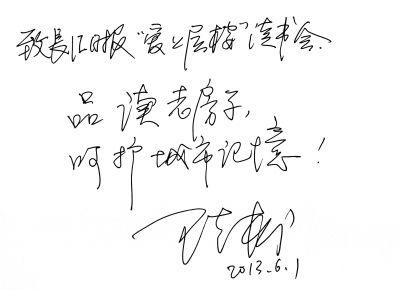 致長江日报"爱上层楼"读书会.
品读老房子,
呵护城市记憶!
2013.6.1